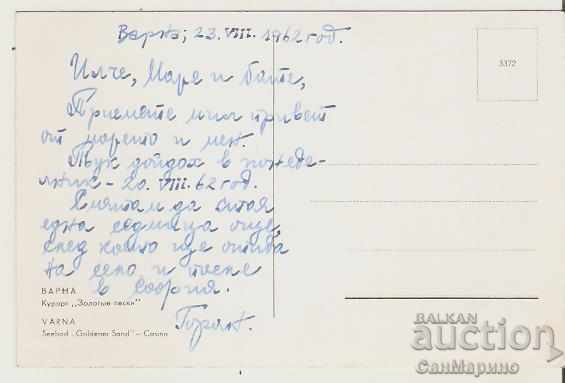 Варна, 23. VIII. 1962 год.
3372
Илче, Маре и бате,
Приемете мил привет
от морето и мен.
Тук дойдох в понеде-
лник - 20. VIII. 62 год.
Смятам да остоя
една седмица още,
след което ще отида
на село и после
в София.
Горян.
ВАРНА
Курорт „Золотые пески“
VARNA
Seebad „Goldener Sand“ – Casino
BALKAN
auction
СанМарино